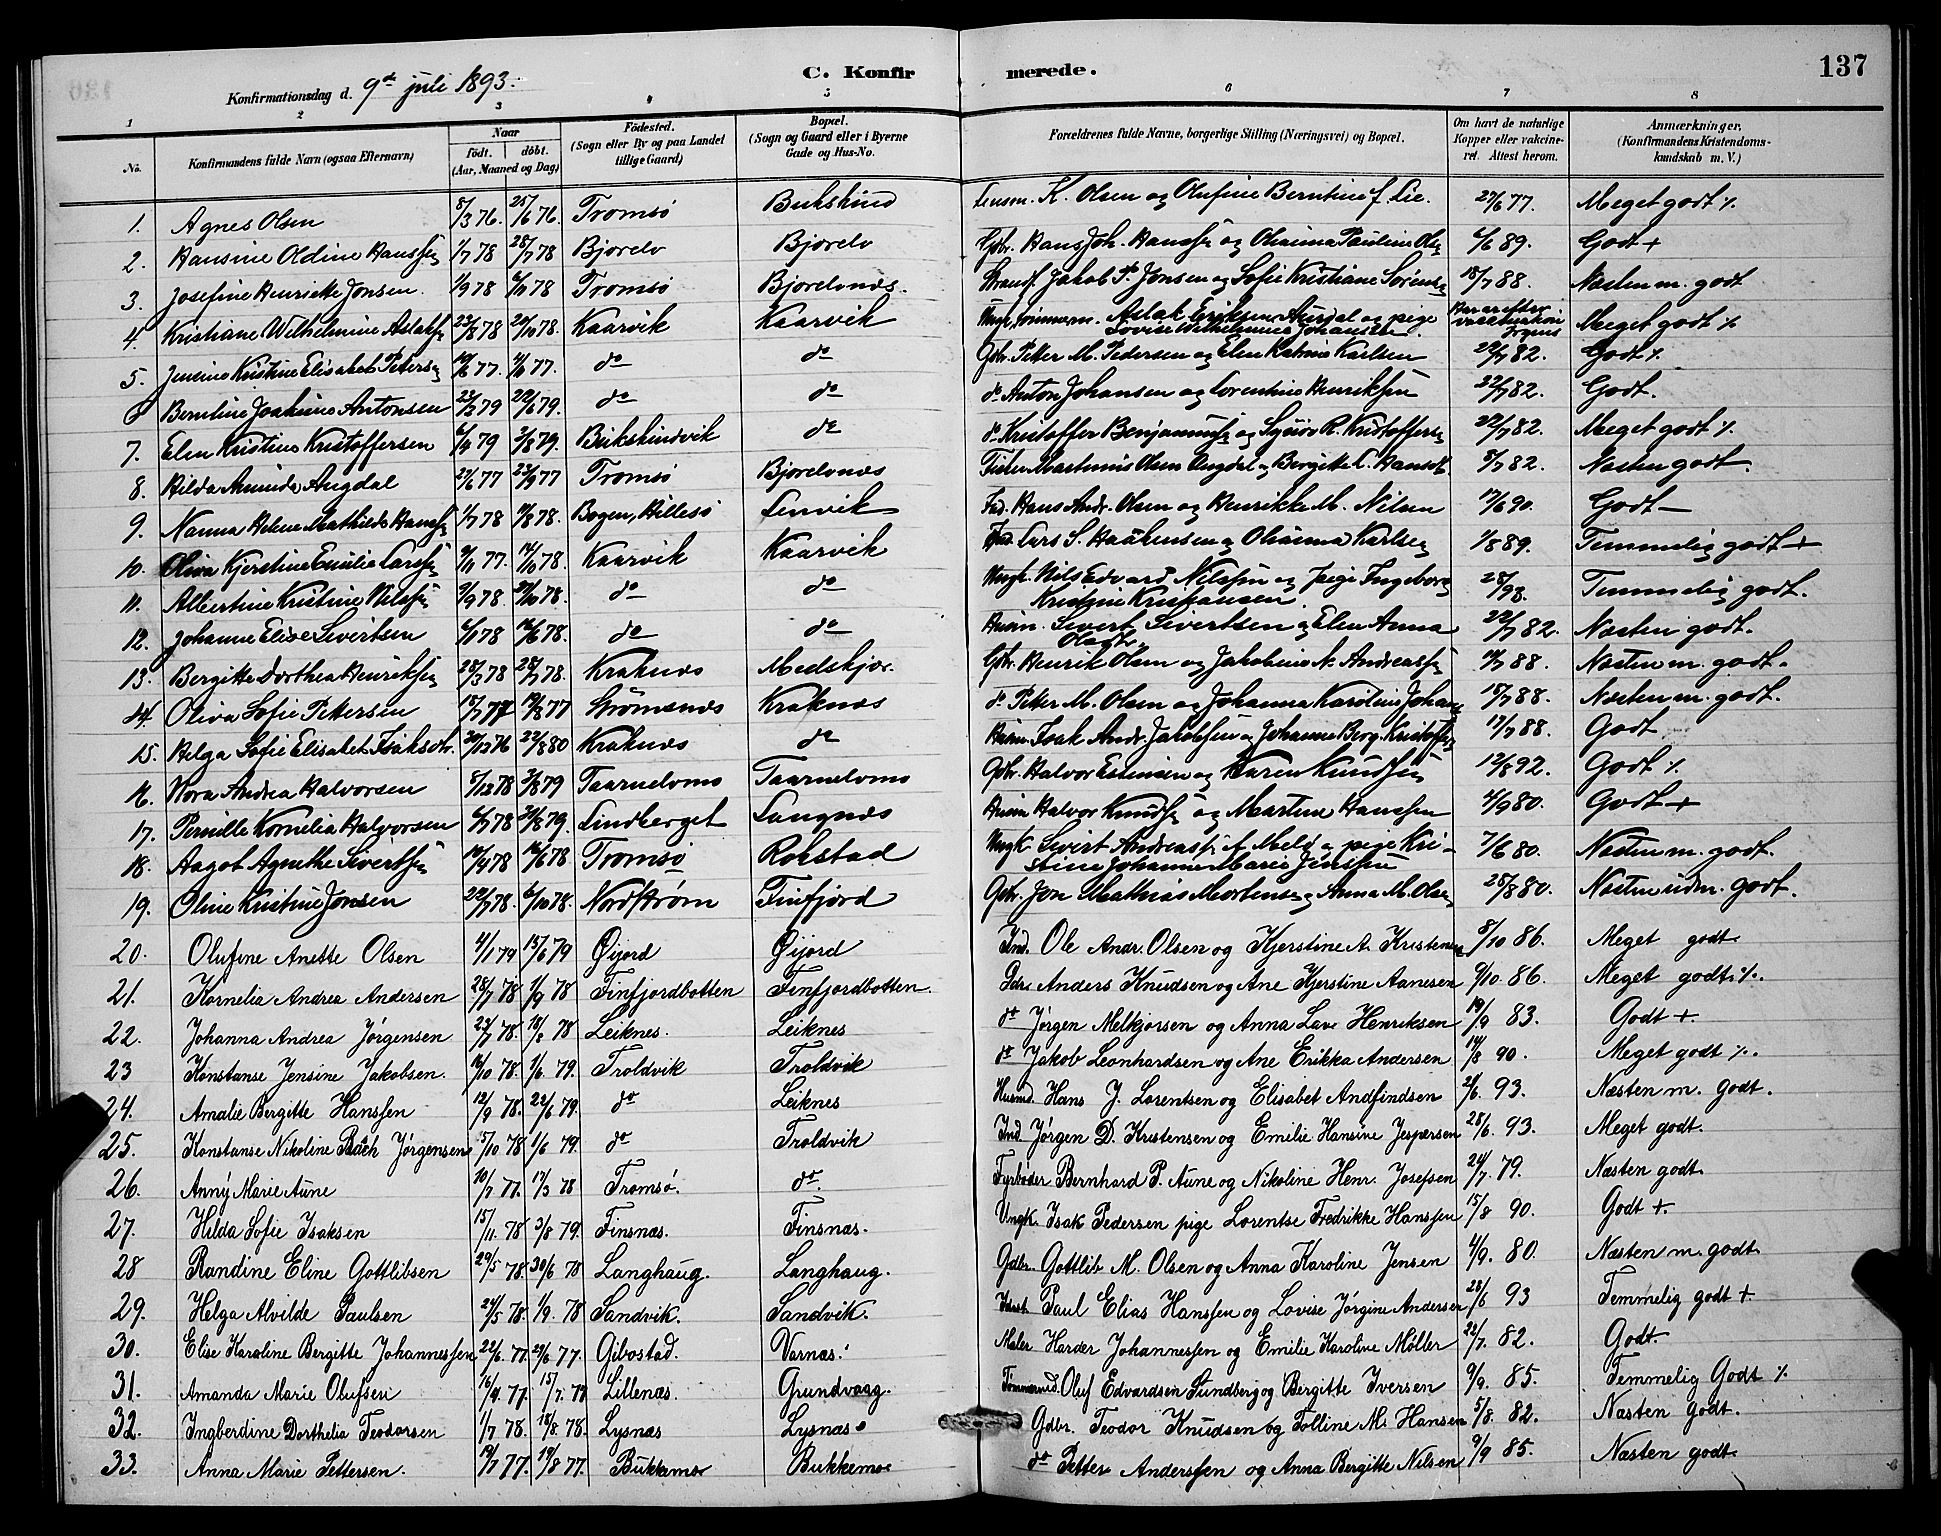 Konfirmationsdag d. 9de juli 1893.
C. Konfirmerede.
137
1 2 3 4 5 6 7 8
No. Konfirmandens fulde Navn (ogsaa Efternavn) Naar født. døbt. (Aar, Maaned og Dag) Fødested. (Sogn eller By og paa Landet tillige Gaard) Bopæl. (Sogn og Gaard eller i Byerne Gade og Hus-No. Forældrenes fulde Navne, borgerlige Stilling (Næringsvei) og Bopæl. Om havt de naturlige Kopper eller vakcineret. Attest herom. Anmærkninger. (Konfirmandens Kristendomskundskab m. V.)
1. Agnes Olsen 8/3 76. 25/6 76. Tromsö Bukskind Lensm. K. Olsen og Olufine Berntine f. Lie. 27/6 77. Meget godt %
2. Hansine Oldine Hanssen 1/7 78 28/7 78 Bjorelv Bjorelv Gbr. Hans Joh. Hanssen og Olianna Pauline Olsen 6/6 89. Godt +
3. Josefine Henriette Jonsen. 1/9 78 6/10 78 Tromsö Bjorelvnes. Strand. Jakob P. Jonsen og Sofie Kristiane Sörensen 18/7 88. Næsten m. godt
4. Kristiane Wilhelmine Aslaksen 23/8 78 20/10 78. Kaarvik Kaarvik Ungk. tömmerm. Aslak Eriksen Aursdal og pige Lovise Wilhelmine Johansen Meget godt %
5. Jensine Kristine Elisabet Petersen 10/6 77. 4/10 77. do do Gbr. Petter M. Pedersen og Elen Katrine Karlsen 22/7 82. Godt %
6 Berntine Joakime Antonsen 23/3 79 22/6 79. do do do Anton Johansen og Lorentine Henriksen 22/7 82. Godt.
7. Elen Kristine Kristoffersen 6/4 79 3/8 79. Bukskindvik do do Kristoffer Benjaminsen og R. Kristoffersen 22/7 82. Meget godt %
8. Hilda Aminda Augdal 22/6 77 23/9 77 Tromsö Bjorelvnes Fisker Martinus Olsen Augdal og Bergitte C. Hansdt 5/7 82. Næsten godt.
9. Nanna Helene Mathilde Hanssen 1/7 78 11/8 78. Bogen, Hillesö Lenvik Ind. Hans Andr. Olsen og Henrikke M. Nilsen 17/6 90. Godt —
10. Oliva Kjerstine Emilie Larssen 9/11 77. 14/10 78. Kaarvik Kaarvik Lars S. Haakensen og Olianna Karlsen 1/8 89. Temmelig godt +
11. Albertine Kristine Nilssen 9/9 78 20/10 78. do do Ungk. Nils Edvard Nilssen og pige Ingeborg Kristine Kristiansen. 28/ 93. Temmelig godt.
12. Johanne Elise Sivertsen 6/1 78 16/6 78. do do Husm. Sivert Sivertsen og Elen Anna Olsdt 22/7 82. Næsten godt.
13. Bergitte Dorthea Henriksen 28/3 78 28/7 78. Kraknes Medskjær. Gbr. Henrik Olsen og Jakobine N. Andreassen 10/7 88. Næsten m. godt.
14. Oliva Sofie Pettersen 17/7 77 19/8 77 Strömsnes Kraknes do Peter M. Olsen og Johanna Karoline Johans 18/7 88. Næsten m. godt.
15. Helga Sofie Elisabet Isaksdt. 20/12 76 22/8 80 Kraknes do Husm. Isak Andr. Jakobsen og Johanne Berg. Kristoffers 17/7 88. Godt
16. Nora Andrea Halvorsen 8/12 78 3/8 79 Taarnelvmo Taarnelvmo Gbr. Halvor Estensen og Karen Knudsen 12/8 92. Godt %
17. Pernille Kornelia Halvorsen 6/7 78 31/8 79. Lindberget Langnes Husm Halvor Knudsen og Martine Hanssen 4/9 80. Godt +
18. Aagot Agnethe Sivertsen 10/4 78 16/6 78 Tromsö Rolstad Ungk Sivert Andreass. A. Meld og pige Kristine Johanne Marie Jenssen 7/6 80. Næsten m. godt.
19. Oline Kristine Jonsen 22/7 78. 6/10 78. Nordstrøm Finfjord Gbr. Jon Mathias Mortensen og Anna M. Olsen 28/8 80. Næsten udm. godt.
20. Olufine Anette Olsen 4/1 79 15/6 79 Øijord Øijord Ind. Ole Andr. Olsen og Kjerstine A. Kristensen 5/10 86. Meget godt
21. Kornelia Andrea Andersen 28/7 78 1/9 78 Finfjordbotten Finfjordbotten. Gdbr Anders Knudsen og Ane Kjerstine Aanesen 9/10 86. Meget godt %.
22. Johanna Andrea Jørgensen 23/7 78. 18/8 78 Leiknes. Leiknes do Jørgen Melkjorsen og Anna Lave Henriksen 19/9 83. Godt +.
23 Konstanse Jensine Jakobsen. 16/10 78. 1/6 79. Troldvik Troldvik do Jakob Leonhardsen og Ane Erikka Andersen 14/8 90. Meget godt %.
24. Amalie Bergitte Hanssen 12/9 78. 22/6 79. do Leiknes Husmd. Hans J. Lorentsen og Elisabet Andfindsen 2/6. 93. Næsten m. godt.
25. Konstanse Nikoline Bach Jørgensen 5/10 78 1/6 79. do Troldvik Ind Jørgen D. Kristensen og Emilie Hansine Jespersen 28/6. 93. Meget godt.
26. Anny Marie Aune 10/7 77. 17/3 78 Tromsø. do. Fyrbøder Bernhard P. Aune og Nikoline Henr. Josefsen 24/7. 79. Næsten godt.
27. Hilda Sofie Isaksen 15/11. 78 3/8 79. Finsnæs. Finsnæs. Ungk. Isak Pedersen pige Lorentse Fredrikke Hanssen 15/8 90. Godt +.
28 Randine Eline Gottlibsen 29/5 78. 30/6 78 Langhaug. Langhaug. Gdbr. Gottlib M. Olsen og Anna Karoline Jensen 4/9. 80. Næsten m. godt.
29. Helga Alvilde Paulsen 24/5 78. 1/9. 78 Sandvik. Sandvik. Paul Elias Hanssen og Lovise Jørgine Andersen 28/6 93 Temmelig godt +
30. Elise Karoline Bergitte Johannessen 22/6. 77. 29/6 77. Gibostad. Varnæs. Maler Harder Johannessen og Emilie Karoline Møller 22/7. 82. Godt.
31. Amanda Marie Olufsen 16/4. 77. 15/7. 77 Lillenæs. Grundvaag. Tømmermd. Oluf Edvardsen Sundberg og Bergitte Iversen 9/9. 85. Temmelig Godt %
32. Ingberdine Dorthelia Teodorsen 1/7 78. 18/8. 78 Lysnæs Lysnæs Gdbr. Teodor Knudsen og Tolline M. Hansen 5/8. 82. Næsten godt.
33. Anna Marie Pettersen. 19/7 77. 19/8 77. Bukkemo Bukkemo do Petter Anderssen og Anna Bergitte Nilsen 9/9 85. Næsten godt